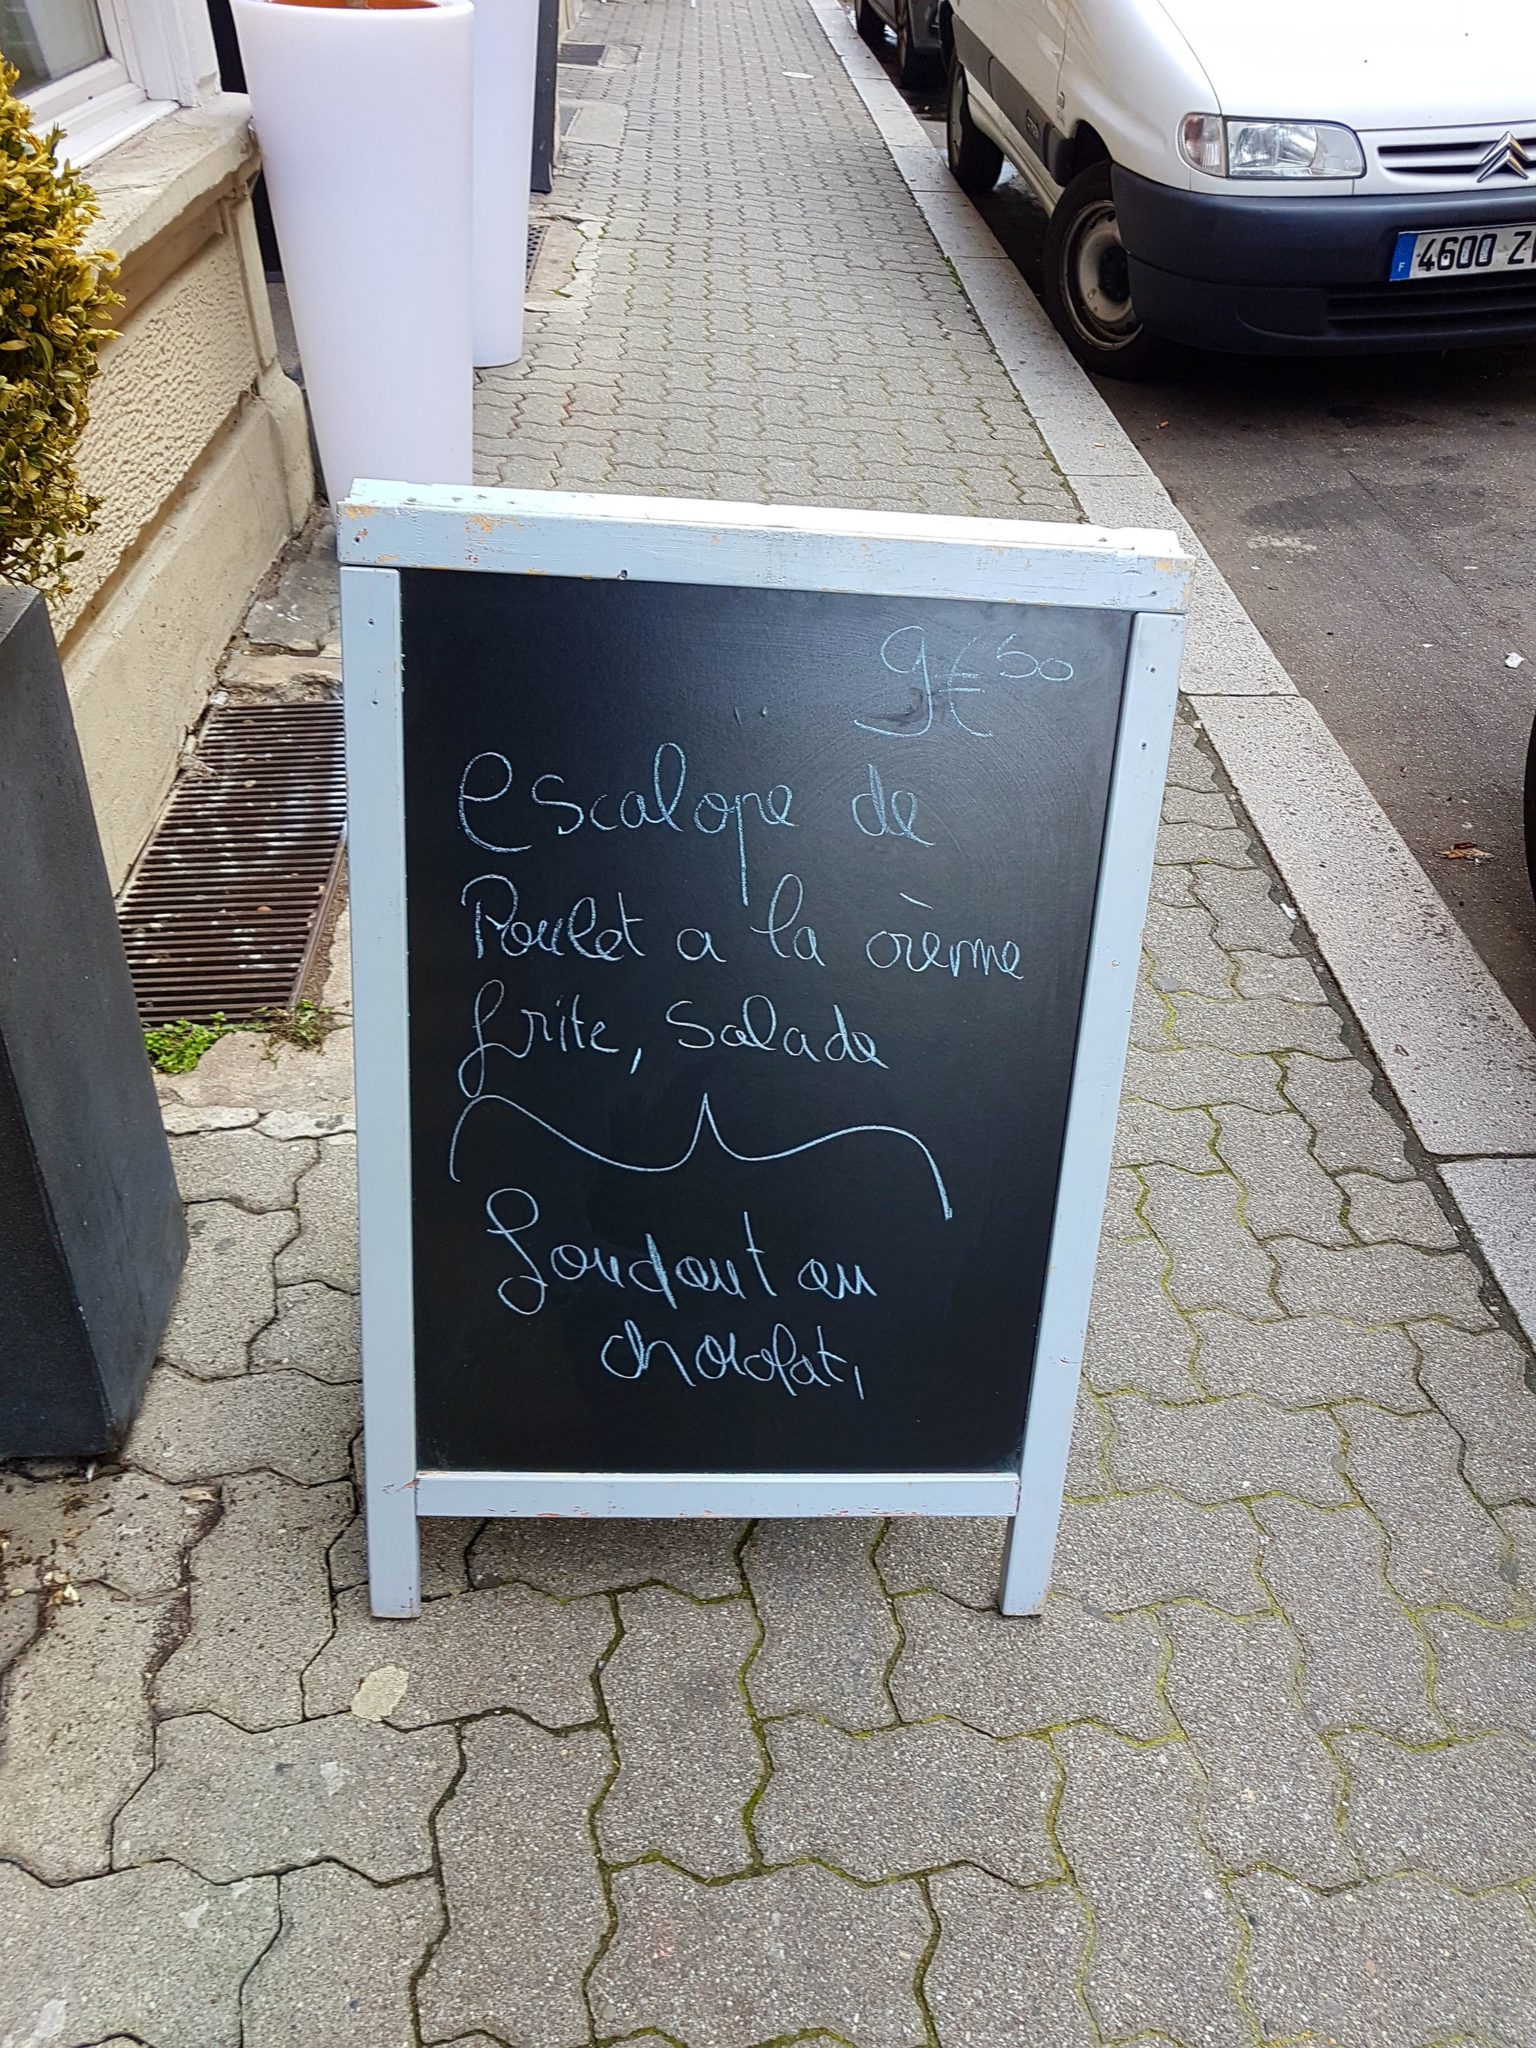 4600 Z
F
9€50
Escalope de
Poulet a la crème
frite, Salade
Fondant au
chocolat,